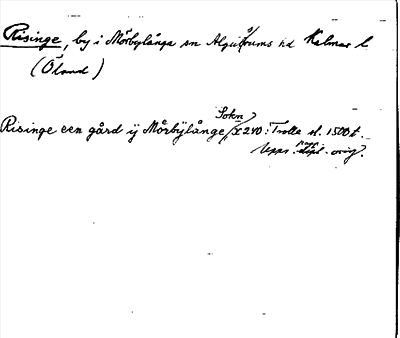 Risinge, by i Mörbylånga sn Algutsrums hd Kalmar l
(Öland)
Risinge een gård ij Mörbÿlånge Sokn X 240: Trolle sl. 1500t.
Uppr. papp. orig.